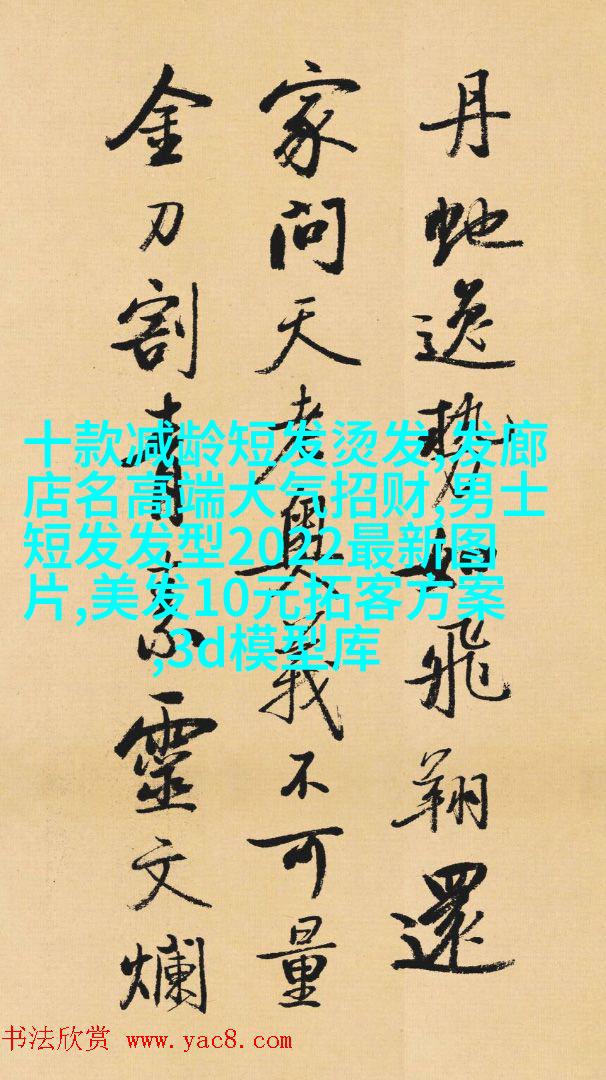 丹虵逸勢如飛翔還
家問天老奥義不可量
金刀割青素靈文爛
十款减龄短发烫发,发廊
店名高端大气招财,男士
短发发型2022最新图
片,美发10元拓客方案
,3d模型库
书法欣赏 www.yac8.com